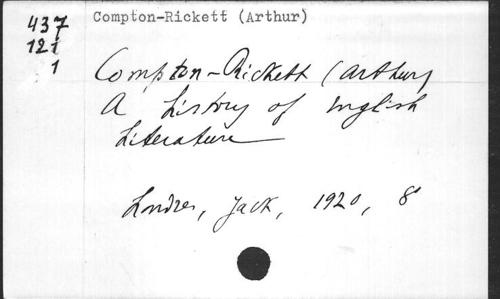 437
121
1
Compton-Rickett (Arthur)
Compton-Rickett (Arthur)
A history of English
Literature
Londres, Jack, 1920, 8°